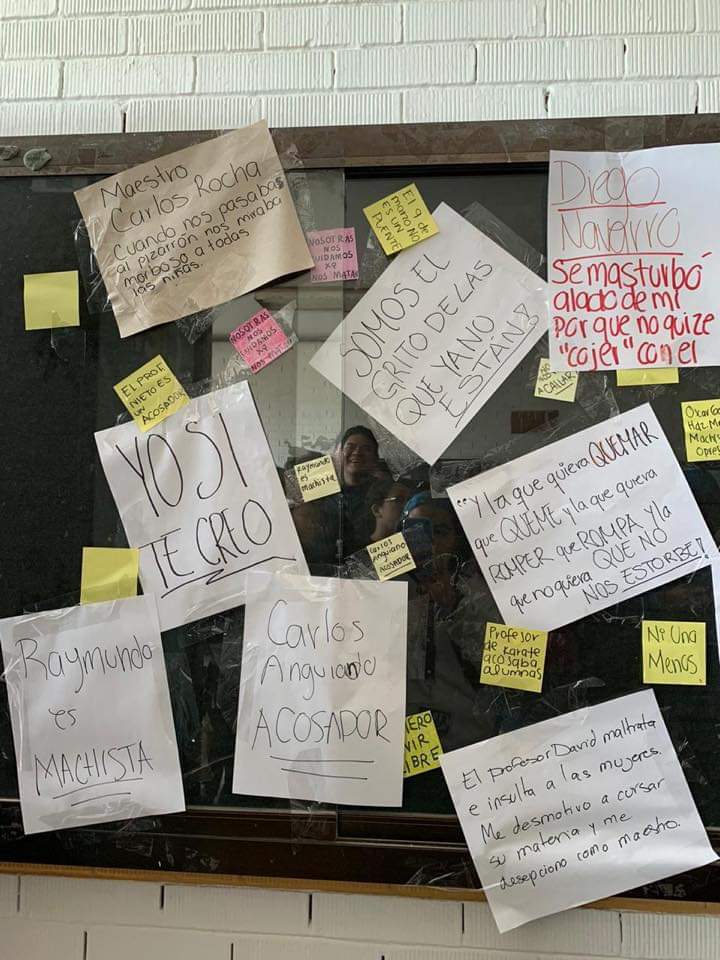 Maestro
Carlos Rocha
Cuando nos pasabas
al pizarrón nos miraba
morboso a todas
las niñas.
NOSOTRAS
NOS
CUIDAMOS
XQ
NOS MATAN
El 9 de
marzo NO
ES UN
PUENTE
Diego
Navarro
Se masturbó
alado de mi
por que no quize
"cojer" con el
NOSOTRAS
NOS
CUIDAMOS
XQ
SOMOS EL
GRITO DE LAS
QUE YA NO
ESTAN!
A CALLAR
EL PROF.
NIETO ES
UN
ACOSADOR
YO SI
TE CREO
Raymundo
es
machista
"Y la que quiera QUEMAR
que QUEME y la que quiera
ROMPER, que ROMPA, y la
que no quiera QUE NO
NOS ESTORBE!
Carlos
Anguiano
ACOSADOR
Raymundo
es
MACHISTA
Carlos
Anguiano
ACOSADOR
Profesor
de Karate
acosaba
alumnas
Ni Una
Menos
VIR
LIBRE
El profesor David maltrata
e insulta a las mujeres.
Me desmotivo a cursar
su materia y me
desepciono como maestro.